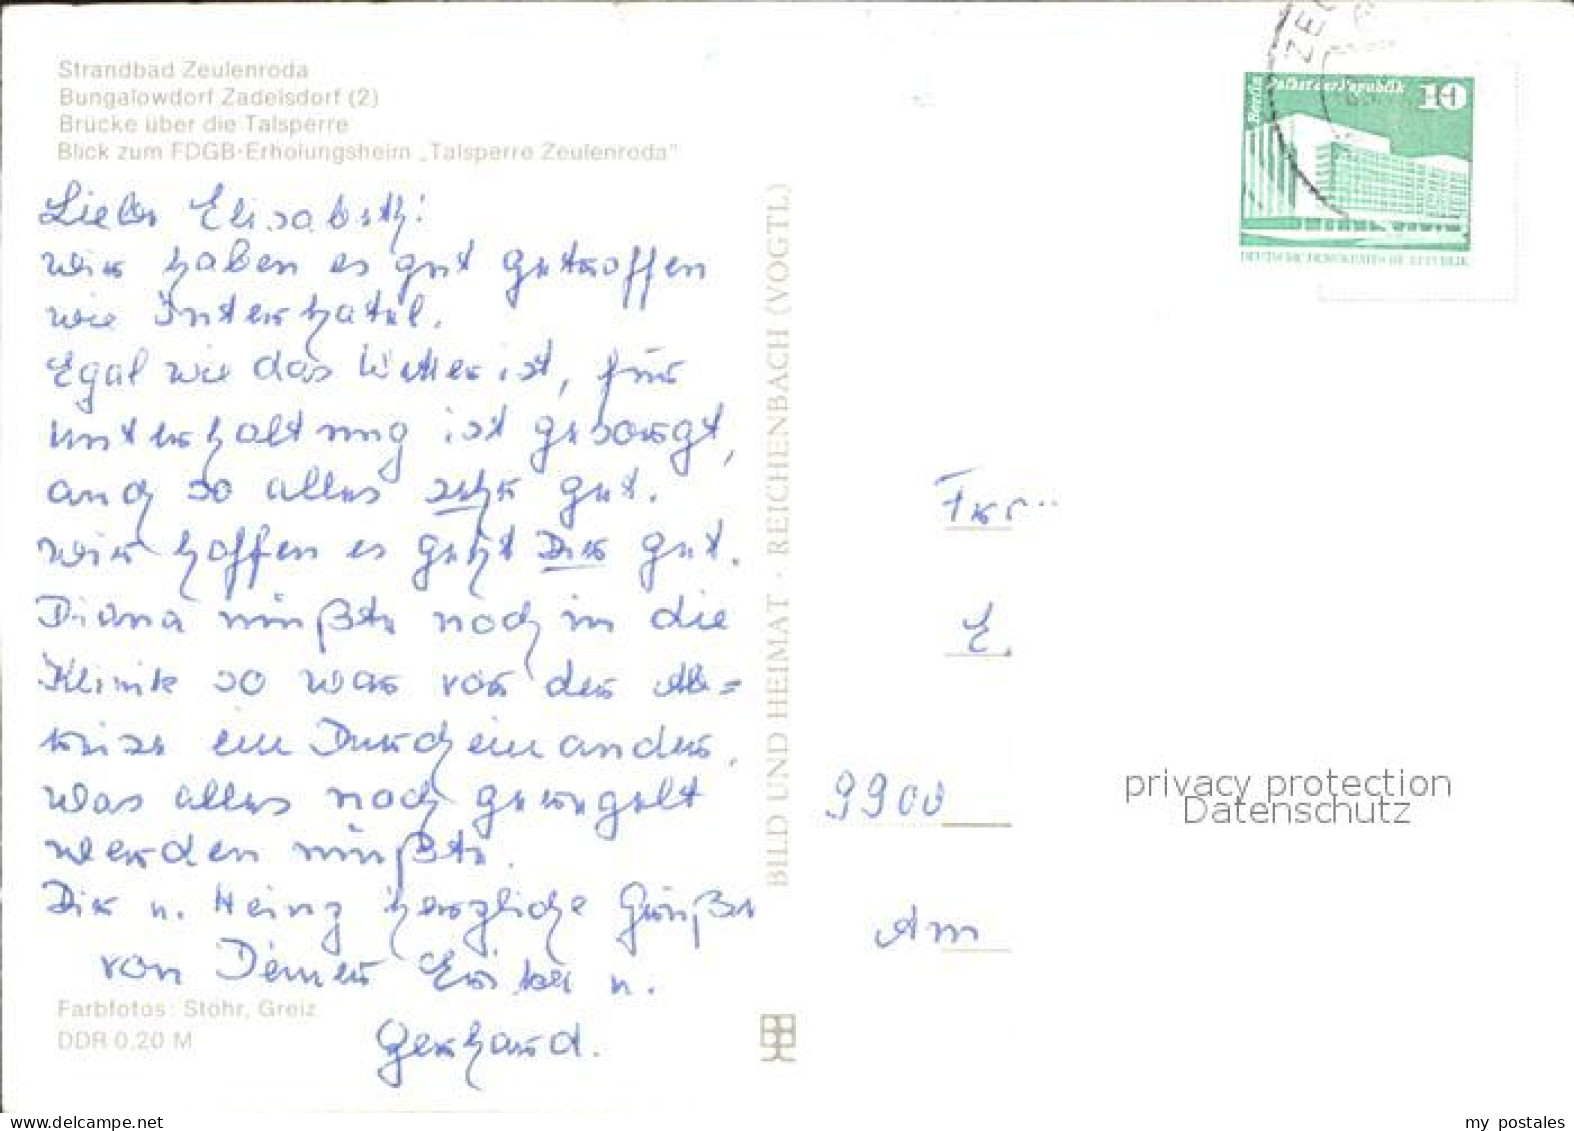 Strandbad Zeulenroda
Bungalowdorf Zadelsdorf (2)
Brücke über die Talsperre
Blick zum FDGB-Erholungsheim „Talsperre Zeulenroda"
Liebe Elisabeth!
wir haben es gut getroffen
wie Interhotel.
Egal wie das Wetter ist, für
unterhaltung ist gesorgt,
auch so alles sehr gut.
wir hoffen es geht Dir gut.
Diana mußte noch in die
Klinik so war vor der Ab=
reise ein Durcheinander,
was alles noch geregelt
werden mußte.
Dir u. Heinz herzliche Grüße
von Deiner u.
Gerhard.
Farbfotos: Stöhr, Greiz
DDR 0,20 M
BILD UND HEIMAT · REICHENBACH (VOGTL)
Berlin Palast der Republik 10
DEUTSCHE DEMOKRATISCHE REPUBLIK
E.
9900
Am
privacy protection
Datenschutz
www.delcampe.net
my postales